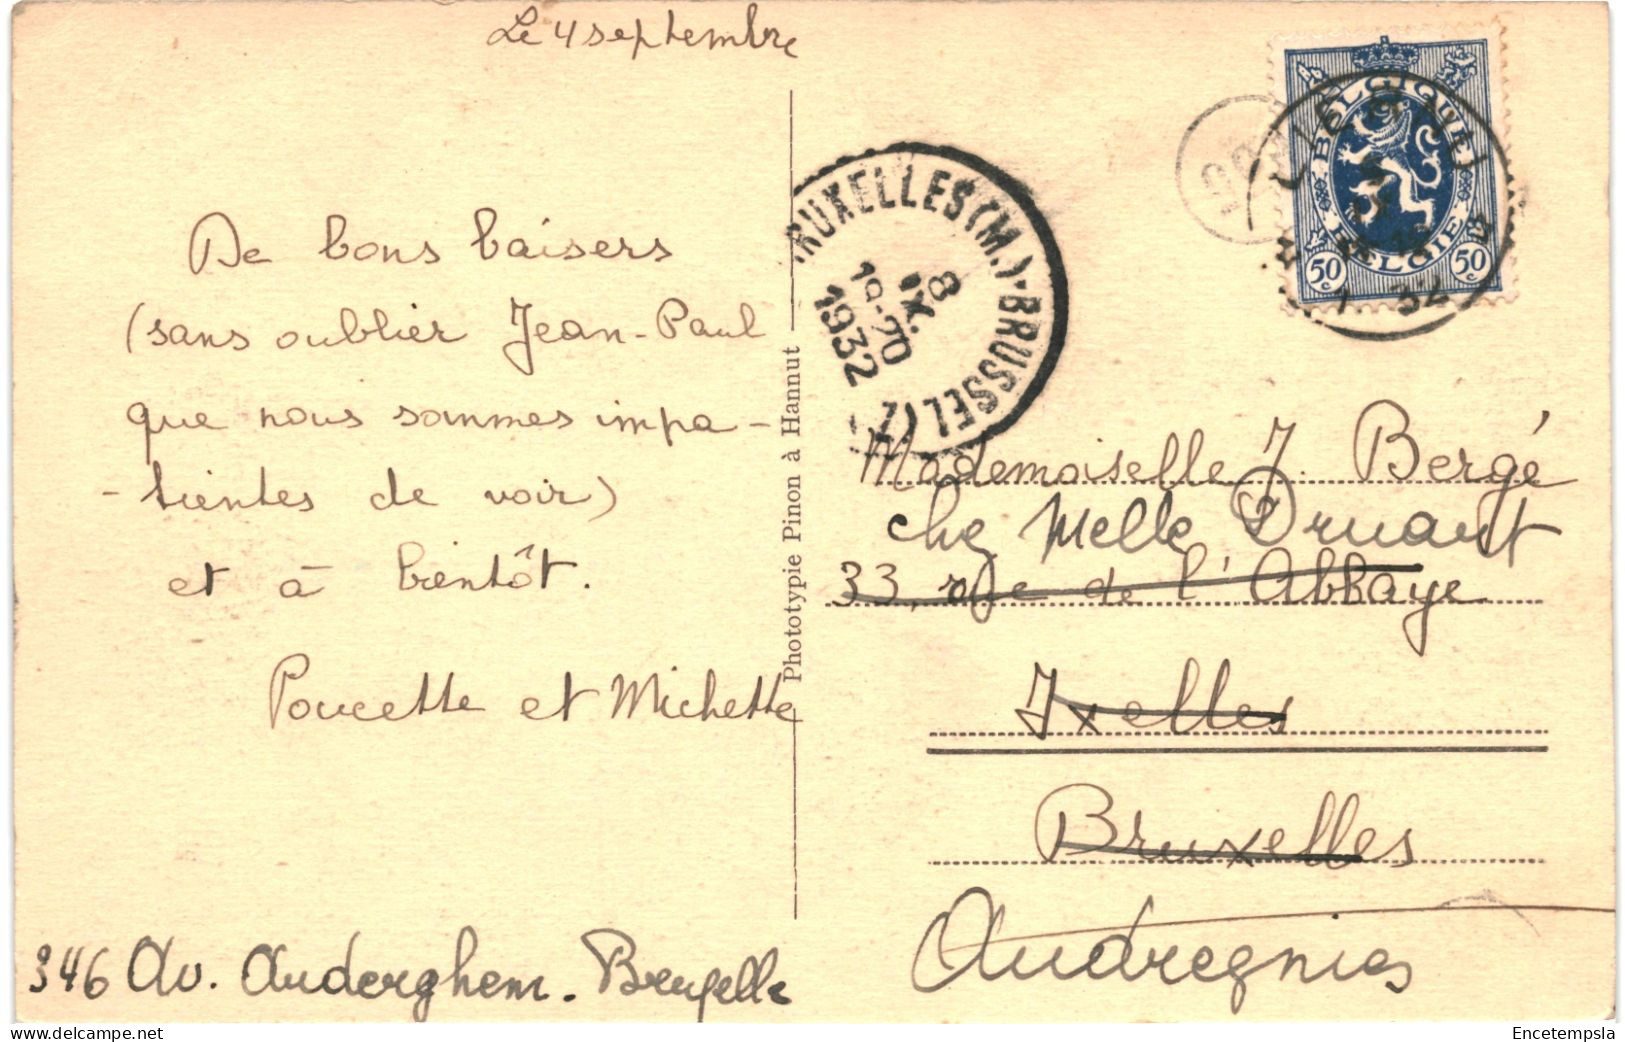 Le 4 septembre
De bons baisers
(sans oublier Jean-Paul
que nous sommes impa-
-tientes de voir)
et à bientôt.
Poucette et Michette
346 Av. Auderghem. Bruxelle
Phototypie Pinon à Hannut
BRUXELLES (M.) - BRUSSEL (Z
8
IX
19-20
1932
BELGIQUE
BELGIE
50c
50c
32
Mademoiselle J. Bergé
chez Melle Druart
33, rue de l'Abbaye
Ixelles
Bruxelles
Audregnies
Encetempsla